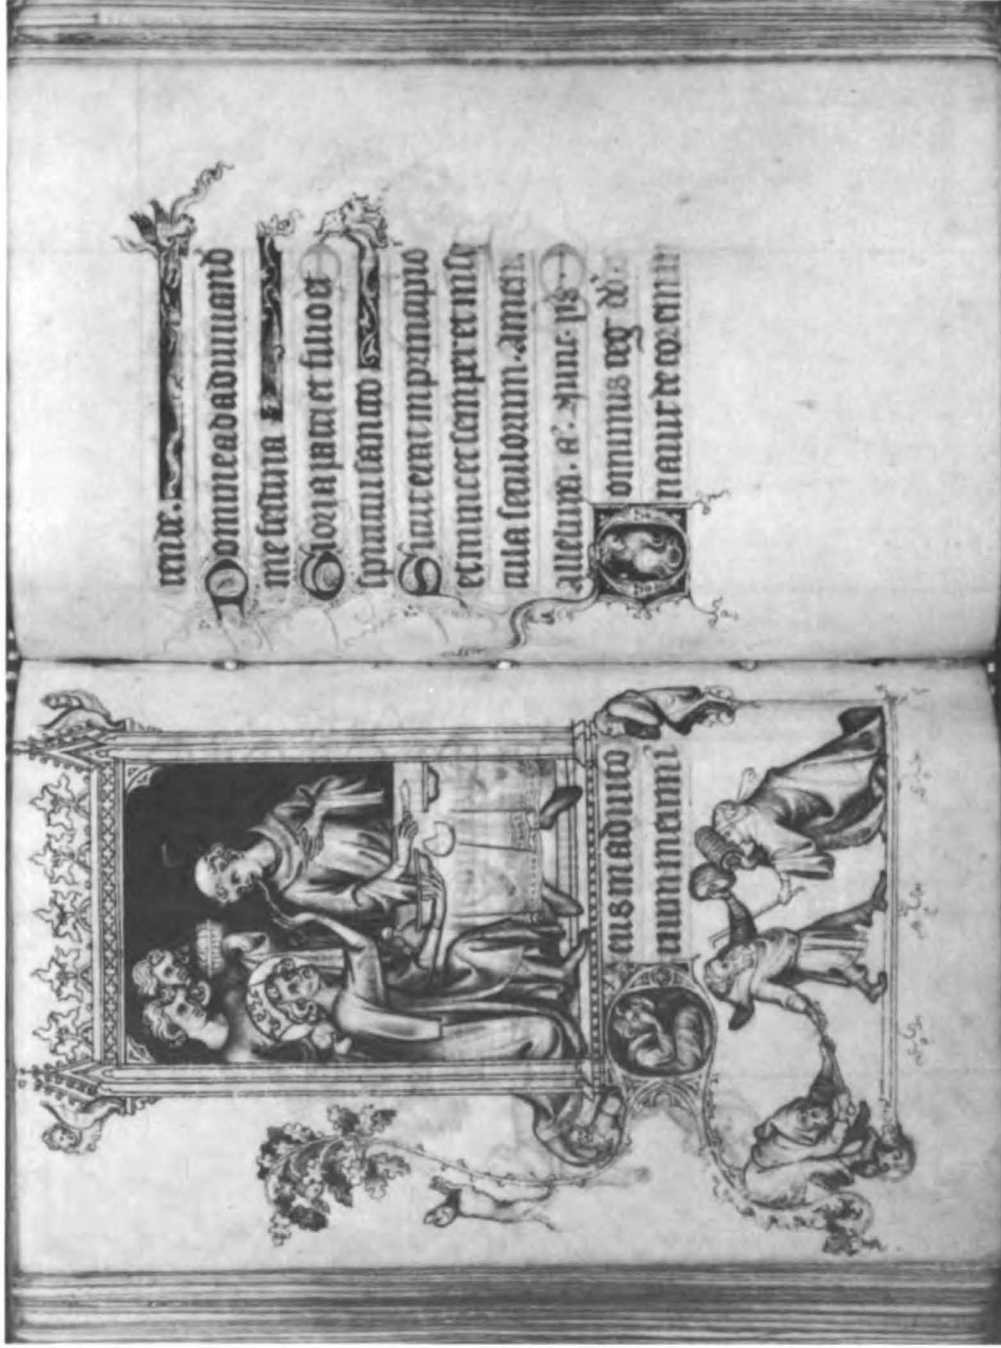 Deus in adiuto
rium meum in
tende.
Domine ad adiuuand
me festina
Gloria patri et filio et
spiritui sancto
Sicut erat in principio
et nunc et semper et in se
cula seculorum. Amen.
Alleluya. a. Nunc. ps.
Dominus reg dd.
nauit decorem in